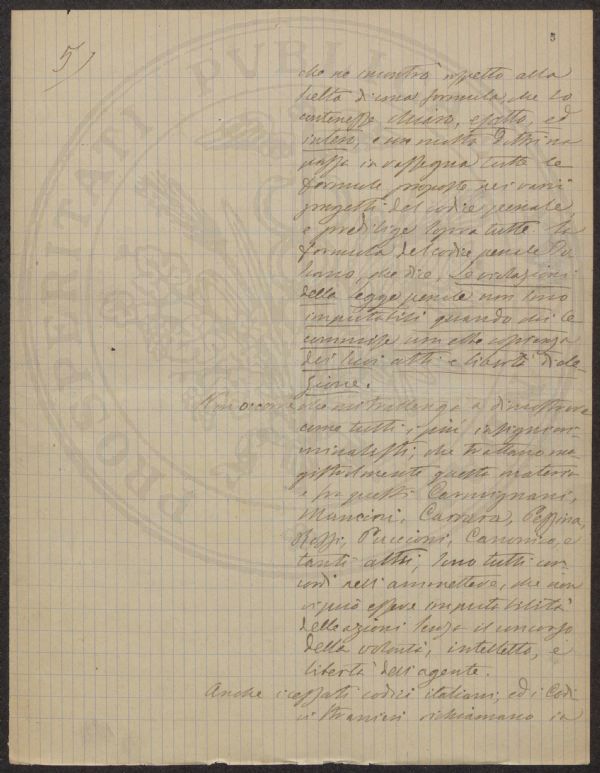 5)
3
che ne incontrò rispetto alla
scelta di una formula, che lo
contenesse chiaro, esatto, ed
intero, e con molta dottrina
passa in rassegna tutte le
formule proposte nei varii
progetti del codice penale,
e predilige sopra tutte la
formula del codice penale To
scano, che dice, Le violazioni
della legge penale non sono
imputabili quando chi le
commise non ebbe coscienza
dei suoi atti e libertà di ele
zione.
Non occorre che mi trattenga a dimostrare
come tutti i più insigni cri
minalisti, che trattano ma
gistralmente questa materia
e fra questi Carmignani,
Mancini, Carrara, Pessina,
Rossi, Puccioni, Canonico, e
tanti altri, sono tutti con
cordi nell'ammettere, che non
vi può essere imputabilità
delle azioni senza il concorso
della volontà, intelletto, e
libertà dell'agente.
Anche i cessati codici italiani, ed i Codi
ci stranieri richiamano in
PROSPERITATI PUBLI